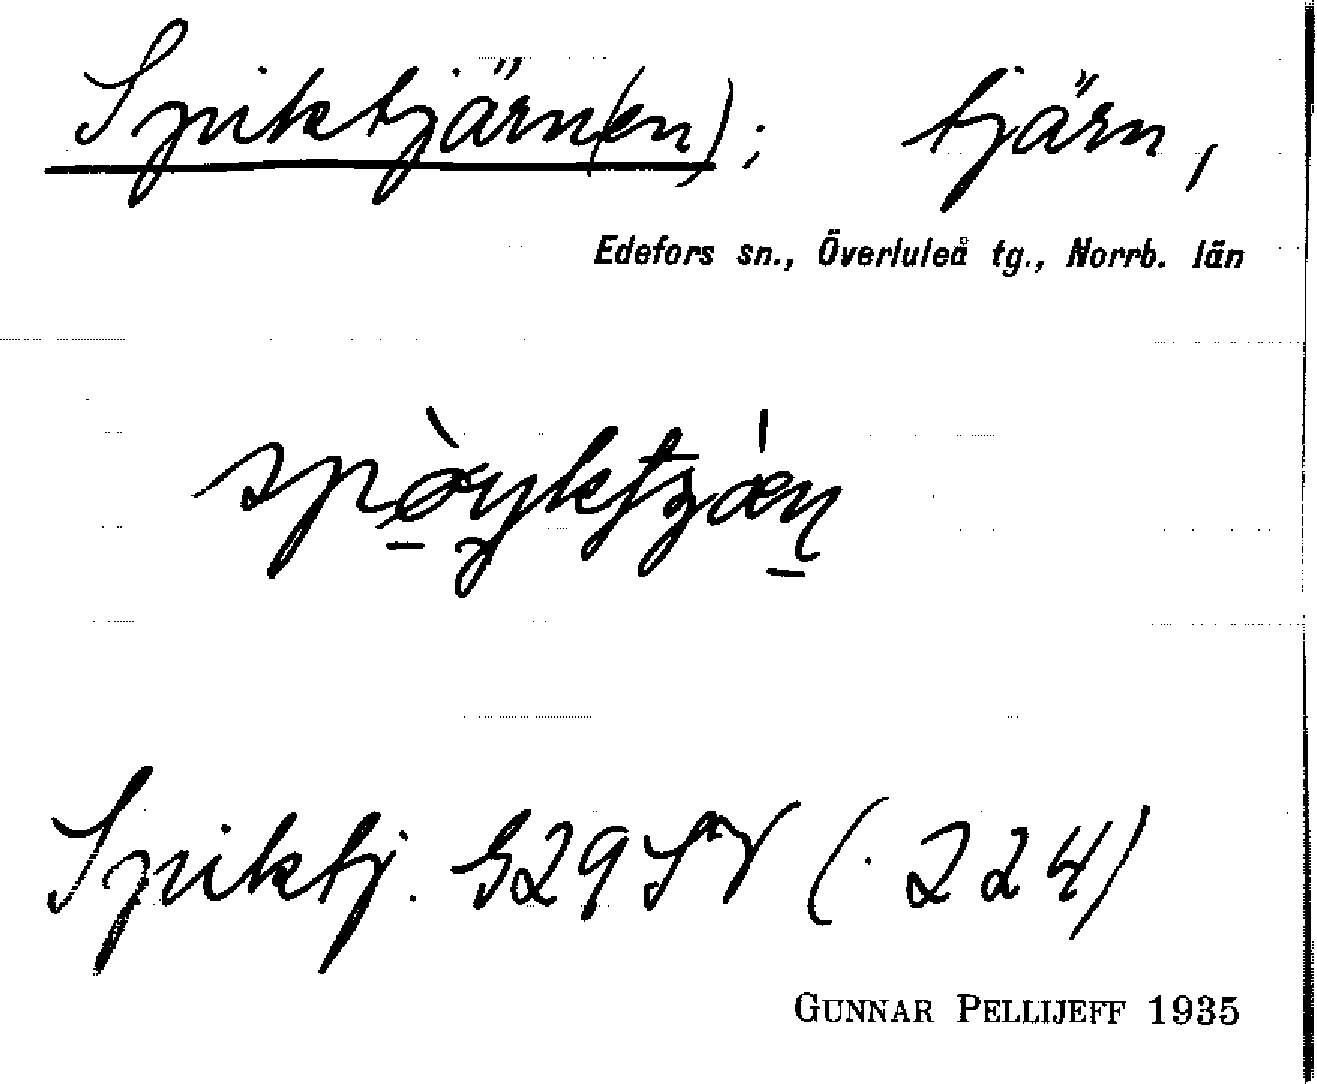 Spiktjärn(en); tjärn,
Edefors sn., Överluleå tg., Norrb. län
Spiktj. G29SV (. 224)
GUNNAR PELLIJEFF 1935